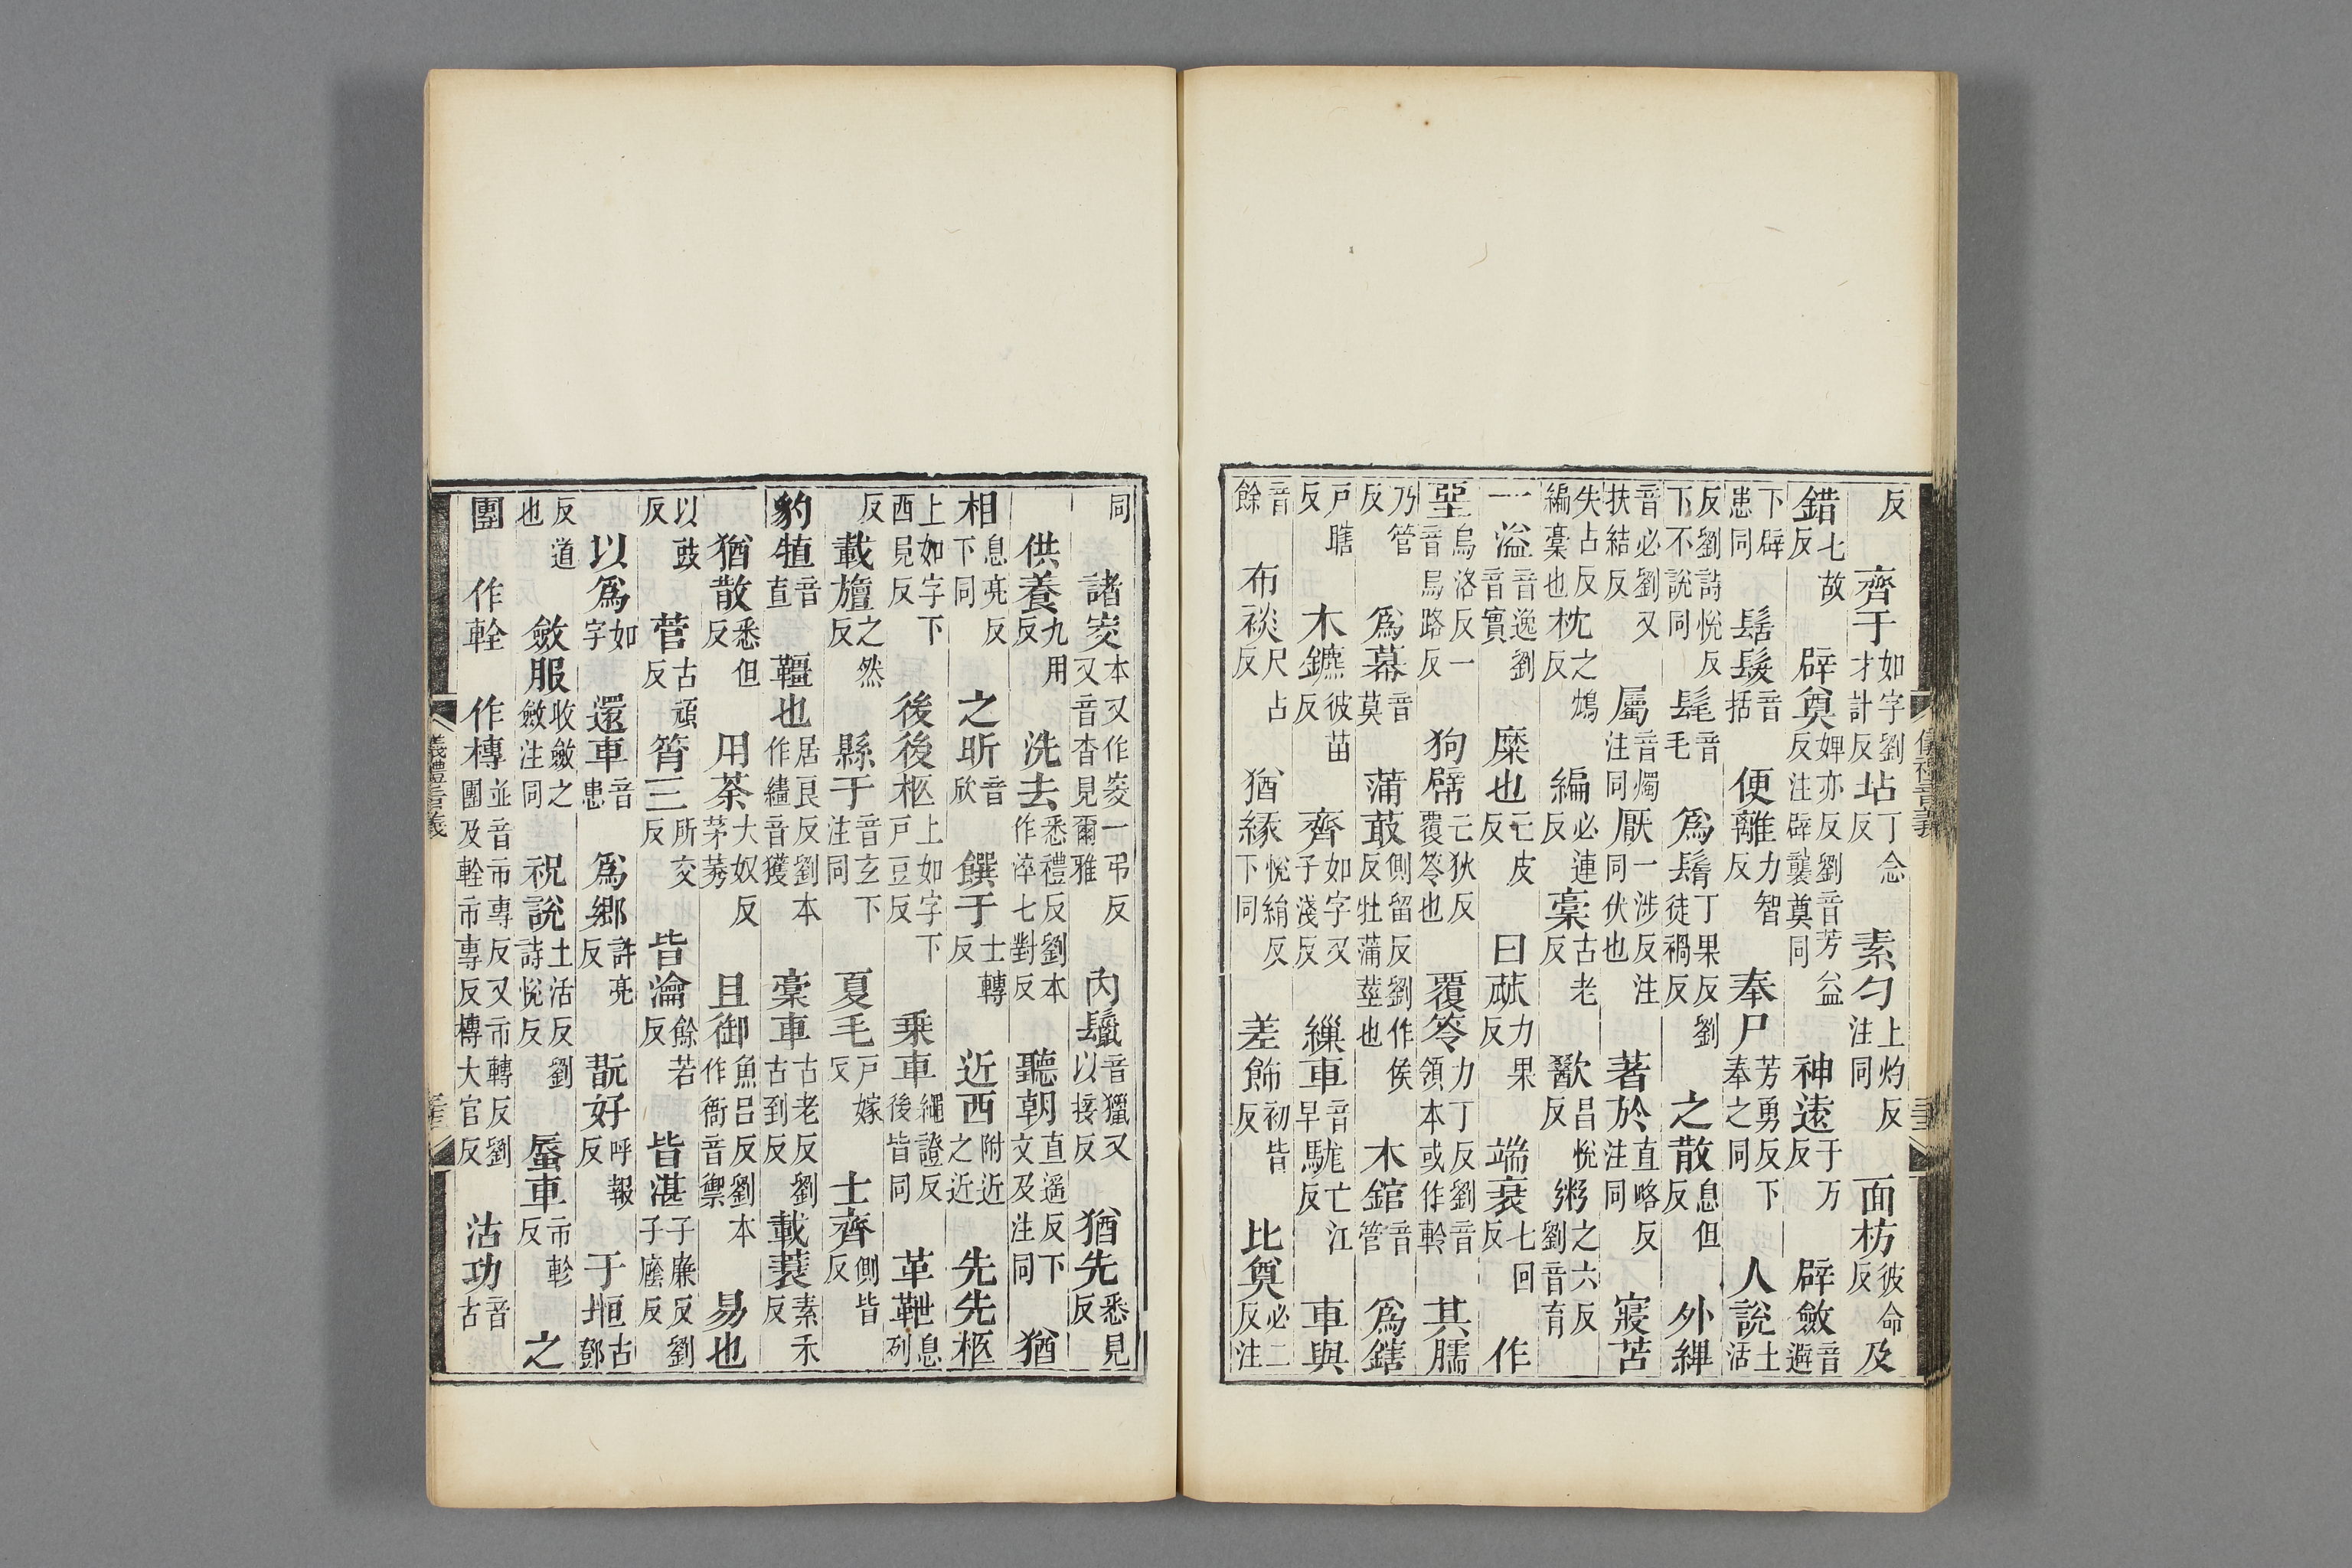 反　齊于如字劉才計反　坫丁念反　素勺上灼反注同　面枋彼命反　及
錯七故反　辟奠婢亦反劉音芳益反注辟襲奠同　神遠于万反　辟斂音避
下辟患同　髺髮音括　便離力智反　奉尸芳勇反下奉之同　人說土活
反劉詩悅反下不說同　髦音毛　爲鬌丁果反劉徒禍反　之散息但反　外縪
音必劉又扶結反　屬音燭注同　厭一涉反注同伏也　著於直略反注同　寢苫
失占反編稾也　枕之鴆反　編必連反　稾古老反　歠昌悅反　粥之六反劉音育
一溢音逸劉音實　糜也亡皮反　曰蓏力果反　端衰七回反　作
堊烏洛反一音烏路反　狗幦亡狄反覆笭也　覆笭力丁反劉音領本或作軨　其臑
乃管反　爲幕音莫　蒲菆側留反劉作侯反牡蒲莖也　木錧音管　爲鎋
戶瞎反　木鑣彼苗反　齊如字又子淺反　纚車音早　駹亡江反　車與
音餘　布裧尺占反　猶緣悅絹反下同　差飾初皆反　比奠必二反注
儀禮音義
同　諸窔本又作㝔一弔反又音杳見爾雅　內鬛音獵又以接反　猶先悉見反
供養九用反　洗去悉禮反劉本作淬七對反　聽朝直遥反下文及注同　猶
相息亮反下同　之昕音欣　饌于士轉反　近西附近之近　先先柩
上如字下西見反　後後柩上如字下戶豆反　乗車繩證反後皆同　革靾息列
反　載旜之然反　縣于音玄下注同　夏毛戶嫁反　士齊側皆反
豹犆音直　韁也居良反劉本作繮音獲　稾車古老反劉古到反　載蓑素禾反
猶散悉但反　用荼大奴反茅莠　且御魚呂反劉本作衙音禦　易也
以豉反　菅古頑反　筲三所交反　皆瀹餘若反　皆湛子廉反劉子廕反
以爲如字　還車音患　爲鄉許亮反　翫好呼報反　于堩古鄧
反道也　斂服收斂之斂注同　祝說土活反劉詩悅反　蜃車市軫反　之
團　作輇　作槫並音市專反又市轉反劉團及輇市專反槫大官反　沽功音古
儀禮音義